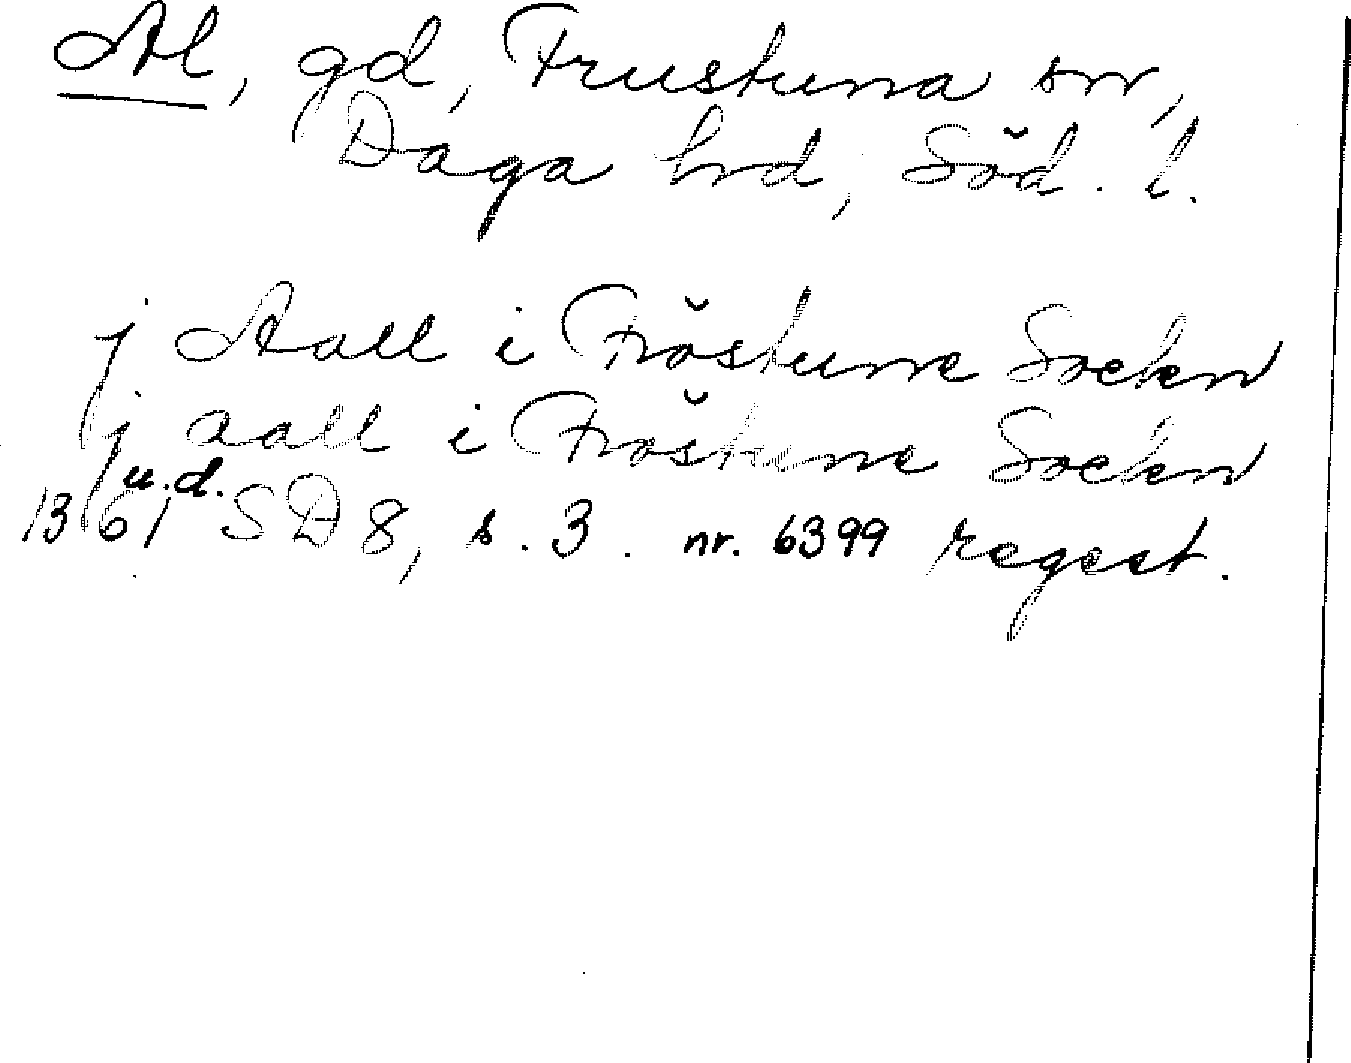 Al, gd, Frustuna sn,
Daga hd, Söd. l.
j Aall i Fröstune Sockn
j aall i Fröstune Sockn
1361 u.d. SD 8, s. 3. nr. 6399 regest.